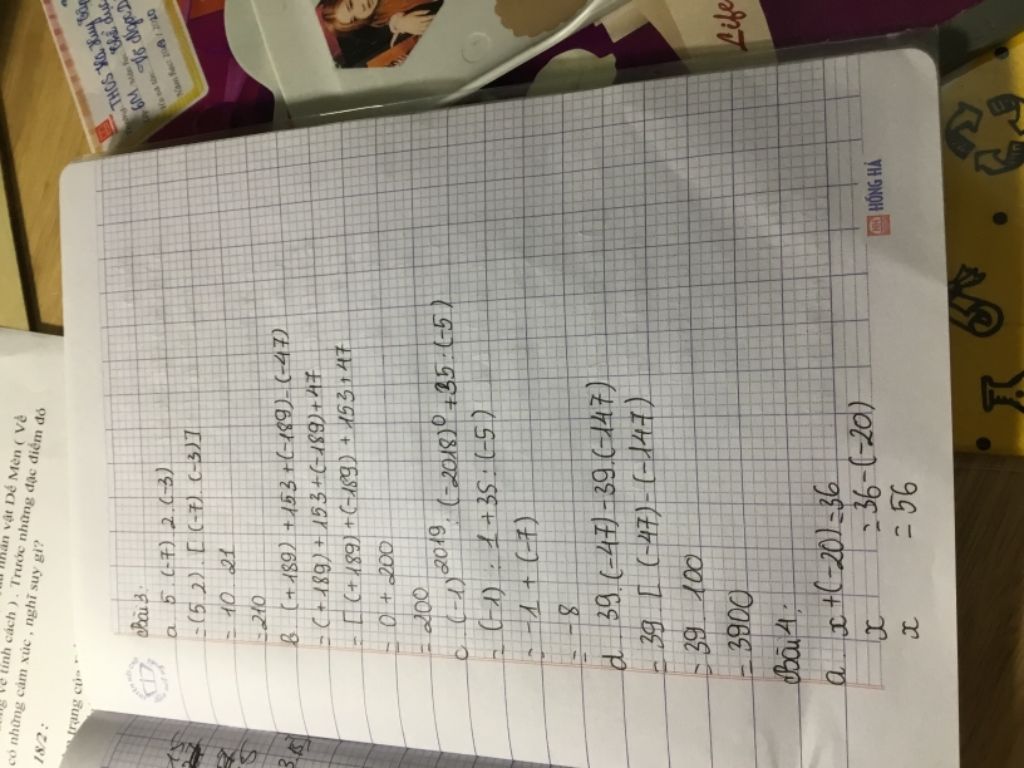 Bài 3:
a. 5.(-7).2.(-3)
= (5.2).[(-7).(-3)]
= 10.21
= 210
b. (+189)+153+(-189)-(-47)
= (+189)+153+(-189)+47
= [(+189)+(-189)+153+47
= 0+200
= 200
c. (-1)²⁰¹⁹:(-2018)⁰+35:(-5)
= (-1):1+35:(-5)
= -1+(-7)
= -8
d. 39.(-47)-39.(-147)
= 39.[(-47)-(-147)
= 39.100
= 3900
Bài 4:
a. x+(-20)=36
x =36-(-20)
x = 56
HỒNG HÀ
Life
THCS
6A1
vật Dế Mèn ( Vẻ
tính cách ) . Trước những đặc điểm đó
có những cảm xúc , nghĩ suy gì?
182 :
trạng của